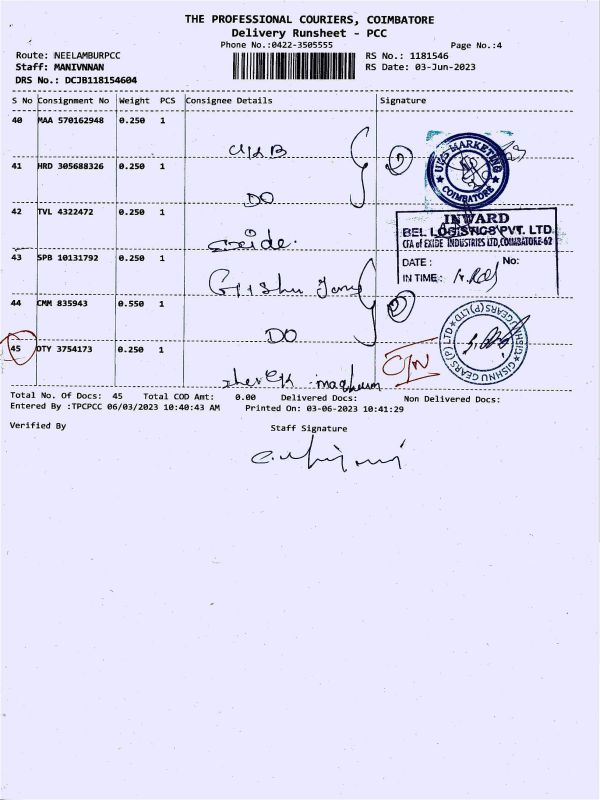 THE PROFESSIONAL COURIERS, COIMBATORE
Delivery Runsheet - PCC
Phone No.:0422-3505555 Page No.:4
Route: NEELAMBURPCC RS No.: 1181546
Staff: MANIVNNAN RS Date: 03-Jun-2023
DRS No.: DCJB118154604
S No Consignment No Weight PCS Consignee Details Signature
40 MAA 570162948 0.250 1
UKB
UMS MARKETING
COIMBATORE
41 HRD 305688326 0.250 1
DO
42 TVL 4322472 0.250 1
Exide.
INWARD
BEL LOGISTICS PVT. LTD
CFA of EXIDE INDUSTRIES LTD, COIMBATORE-62
DATE : No:
IN TIME :
43 SPB 10131792 0.250 1
44 CMM 835943 0.550 1
DO
GISHNU GEARS (P) LTD
45 DTY 3754173 0.250 1
Total No. Of Docs: 45 Total COD Amt: 0.00 Delivered Docs: Non Delivered Docs:
Entered By :TPCPCC 06/03/2023 10:40:43 AM Printed On: 03-06-2023 10:41:29
Verified By Staff Signature